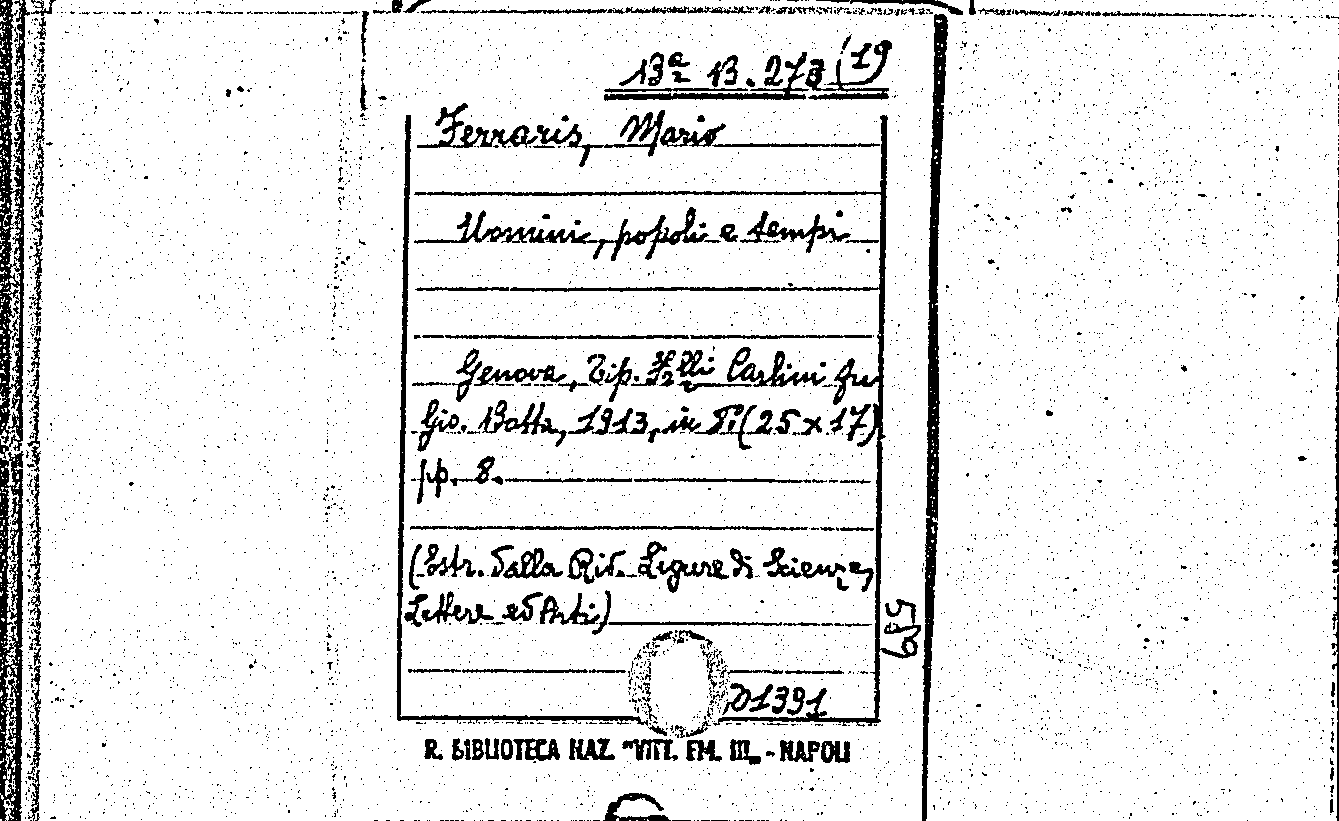 13ª B. 273 (19
Ferraris, Mario
Uomini, popoli e tempi
Genova, Tip. F.lli Carlini fu
Gio. Batta, 1913, in 8°(25 x 17)
pp. 8.
(Estr. dalla Riv. Ligure di Scienze,
Lettere ed Arti)
D1391
R. BIBLIOTECA NAZ. "VITT. EM. III„ - NAPOLI